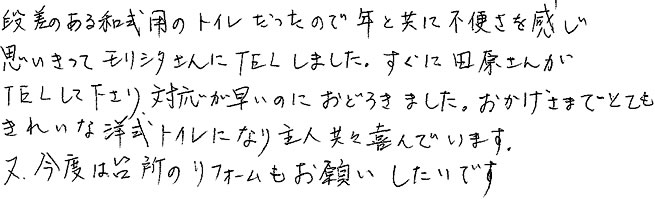 段差のある和式用のトイレだったので年と共に不便さを感じ
思いきってモリシタさんにTELしました。すぐに田原さんが
TELして下さり対応が早いのにおどろきました。おかげさまでとても
きれいな洋式トイレになり主人共々喜んでいます。
又、今度は台所のリフォームもお願いしたいです